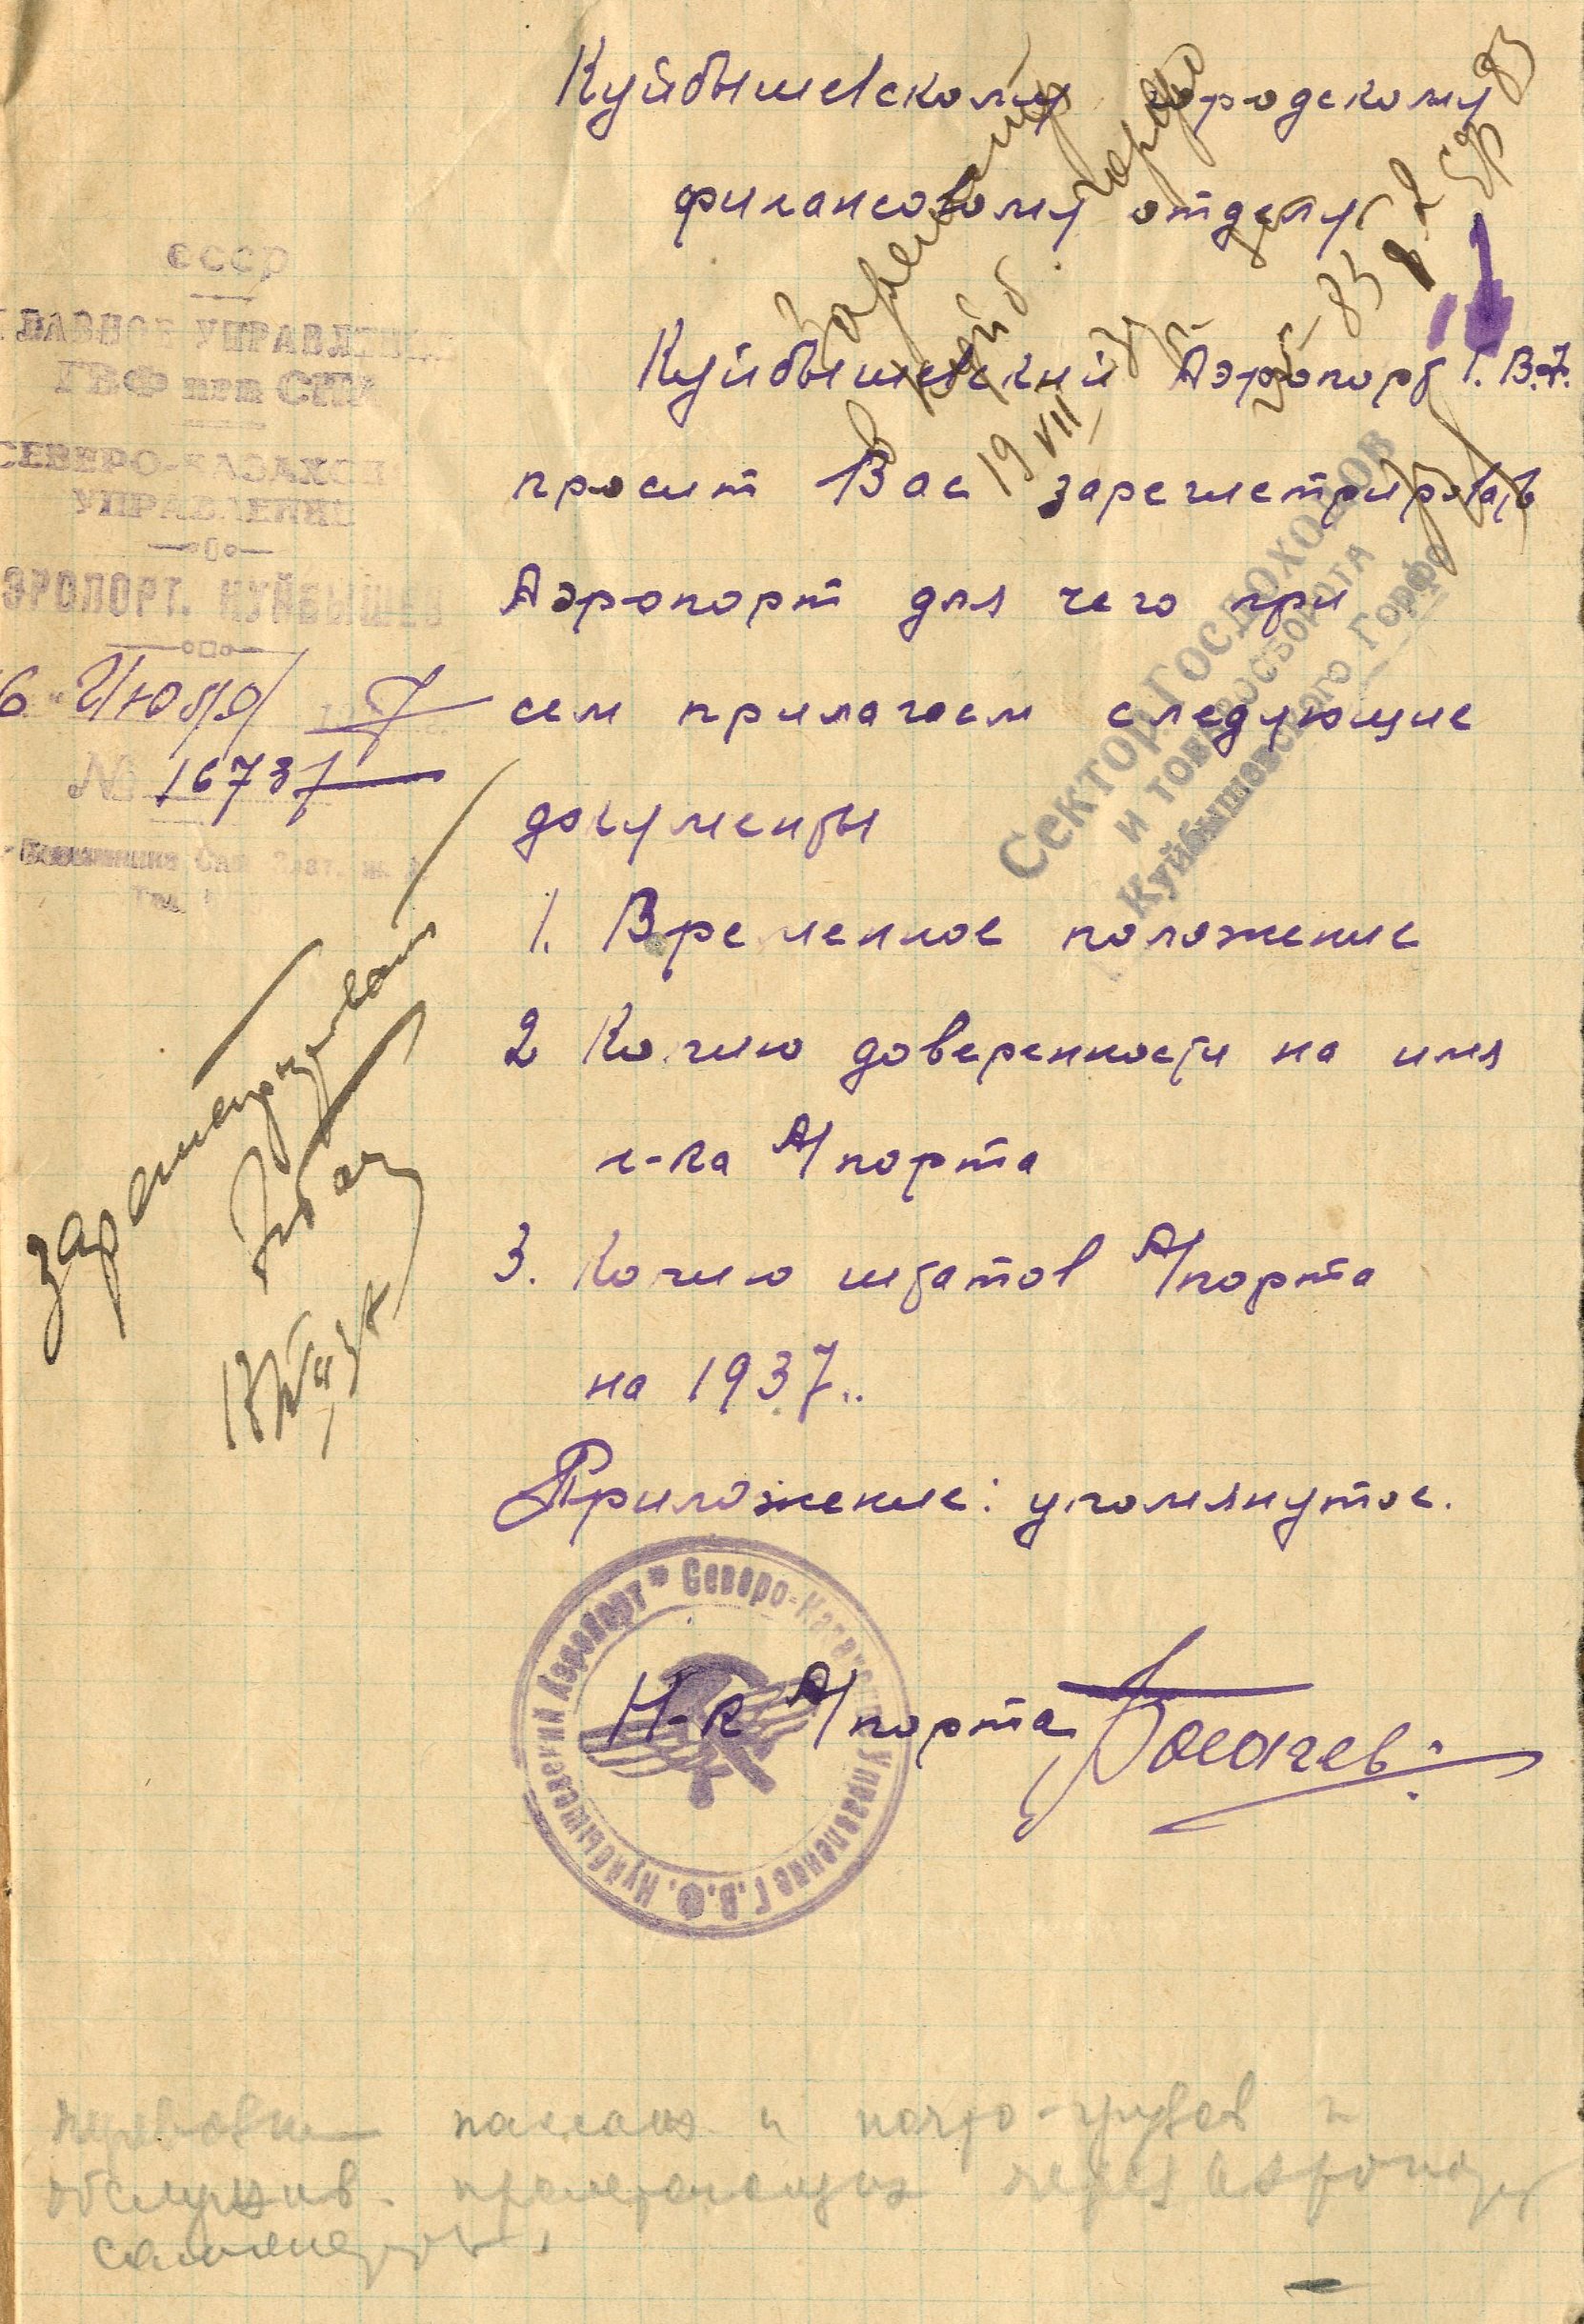 Куйбышевскому городскому
финансовому отделу
СССР
ГЛАВНОЕ УПРАВЛЕНИЕ
ГВФ при СНК
СЕВЕРО-КАЗАХСК
УПРАВЛЕНИЕ
АЭРОПОРТ. КУЙБЫШЕВ
6 " Июля 7
№ 16737
Куйбышевский Аэропорт Г.В.Ф.
просит Вас зарегистрировать
Аэропорт для чего при
сем прилагаем следующие
документы
1. Временное положение
2 Копию доверенности на имя
н-ка А/порта
3. Копию штатов А/порта
на 1937..
Приложение: упомянутое.
Н-к А/порта Богачев
Сектор Госдоходов
и товаросборота
Куйбышевского Горфо
19 VII
зарегистрировать
Куйбышевский Аэропорт * Северо-Казахск. Управление Г.В.Ф.
перевозки пассаж и почто-грузов и
обслужив. пролетающих через аэропорт
самолетов.